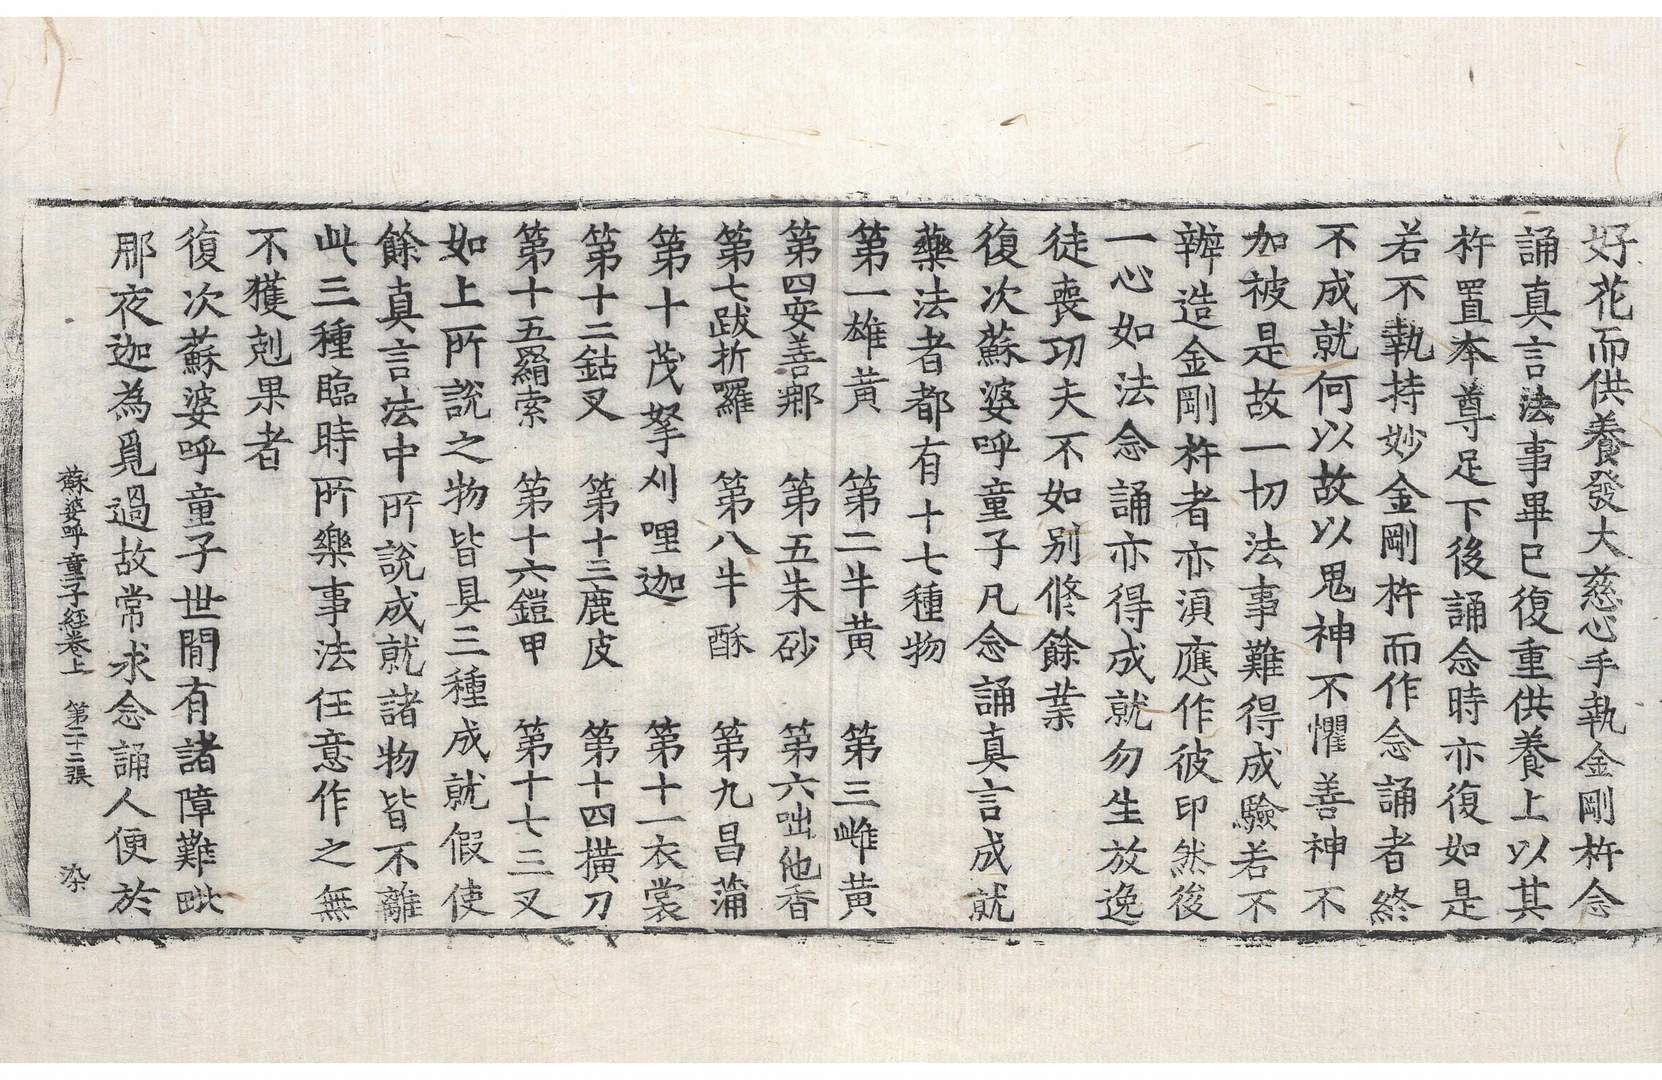 好花而供養發大慈心手執金剛杵念
誦真言法事畢已復重供養上以其
杵置本尊足下後誦念時亦復如是
若不執持妙金剛杵而作念誦者終
不成就何以故以鬼神不懼善神不
加被是故一切法事難得成驗若不
辦造金剛杵者亦湏應作彼印然後
一心如法念誦亦得成就勿生放逸
徒喪功夫不如別修餘業
復次蘇婆呼童子凡念誦真言成就
藥法者都有十七種物
第一雄黃 第二牛黃 第三雌黃
第四安善那 第五朱砂 第六咄他香
第七跋折羅 第八牛酥 第九昌蒲
第十茂拏刈哩迦 第十一衣裳
第十二鈷叉 第十三鹿皮 第十四橫刀
第十五羂索 第十六鎧甲 第十七三叉
如上所說之物皆具三種成就假使
餘真言法中所說成就諸物皆不離
此三種臨時所樂事法任意作之無
不獲剋果者
復次蘇婆呼童子世間有諸障難毗
那夜迦為覓過故常求念誦人便於
蘇婆呼童子經卷上 第二十二張 染